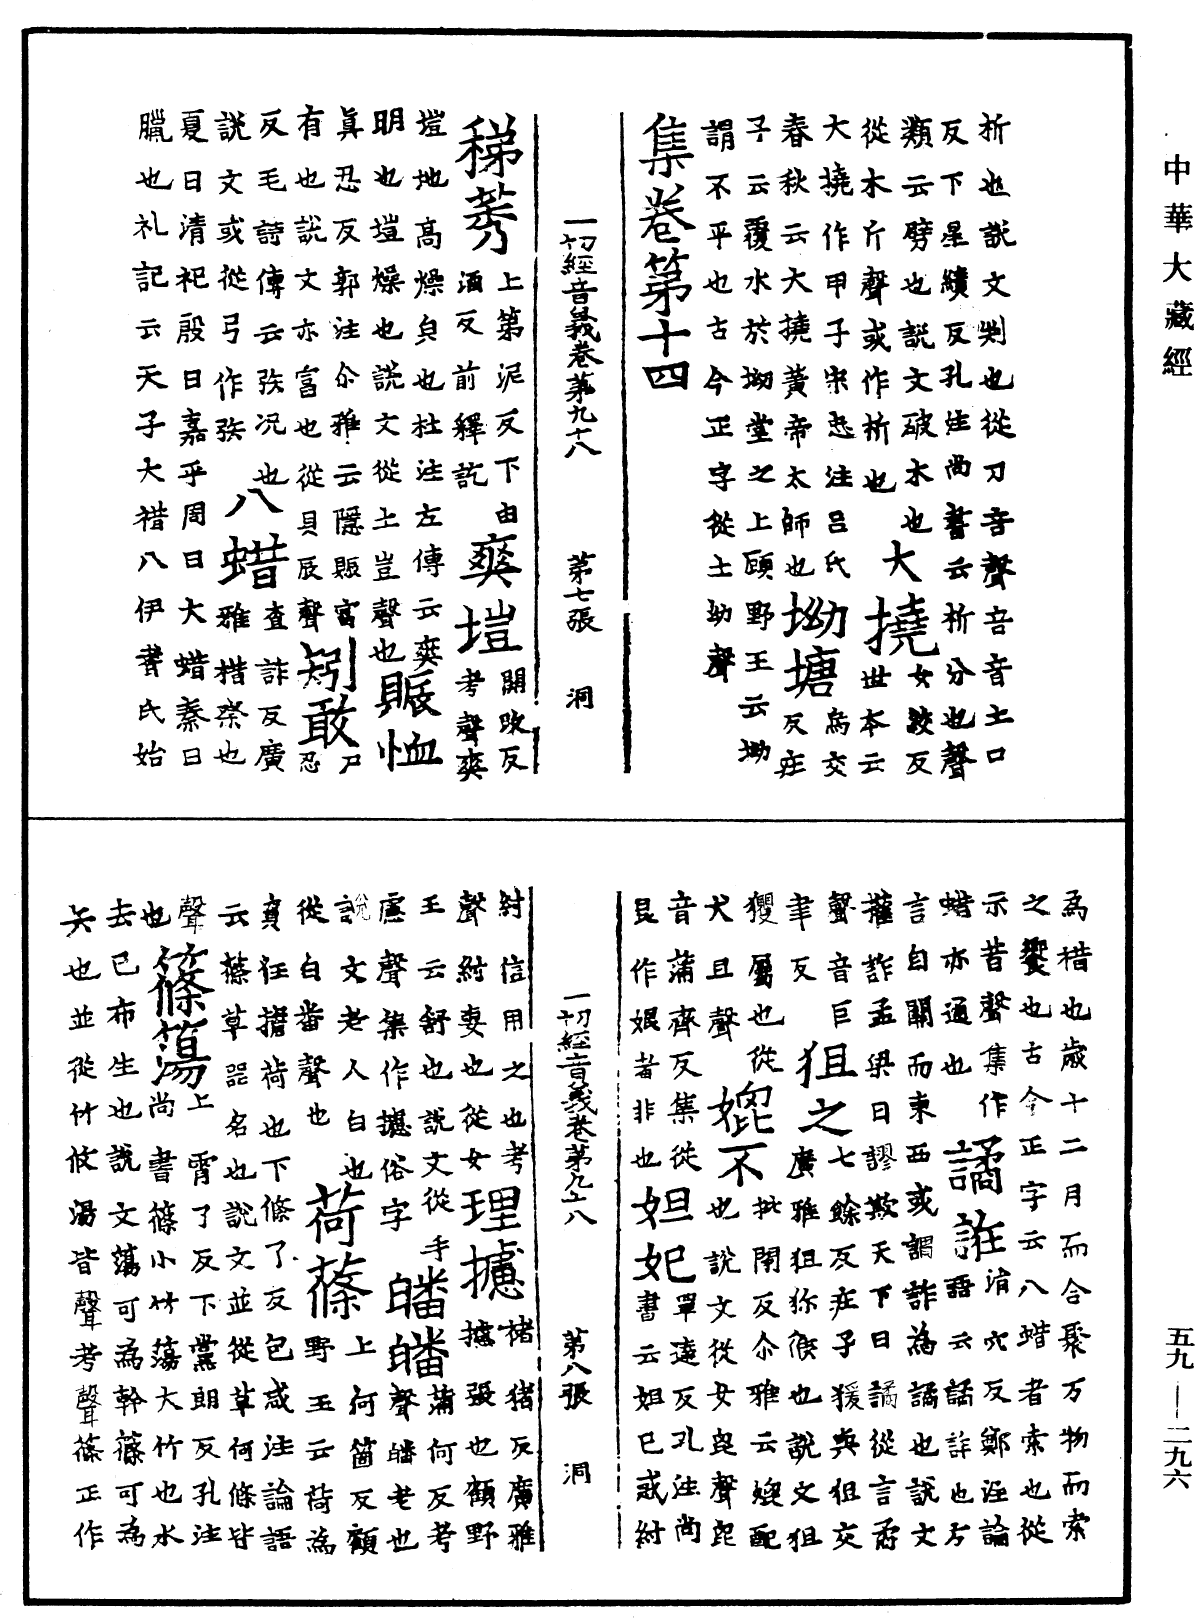 中華大藏經
析也說文判也從刀音聲音音土口
反下星績反孔注尚書云析分也聲
類云劈也說文破木也大撓女絞反
從木斤聲或作析也世本云
大撓作甲子宋忠注呂氏坳塘烏交反
春秋云大撓黃帝太師也莊
子云覆水於坳堂之上顧野王云坳
謂不平也古今正字從土幼聲
集卷第十四
一切經音義卷第九十八 第七張 洞
稊莠上第泥反下由酒反前釋訖爽塏開改反考聲爽
塏地高燥皃也杜注左傳云爽
明也塏燥也說文從土豈聲也賑恤
真忍反郭注尒雅云隱賑富
有也說文亦富也從貝辰聲矧敢尸忍
反毛詩傳云矤況也八蜡查詐反廣
說文或從弓作矤雅禇祭也
夏曰清祀殷曰嘉乎周曰大蜡秦曰
臘也礼記云天子大禇八伊耆氏始
為禇也歲十二月而合聚万物而索
之饗也古今正字云八蜡者索也從
示昔聲集作蜡亦通也譎誑涓穴反鄭注論
語云譎詐也方
言自關而東西或謂詐為譎也說文
權詐孟梁曰謬欺天下曰譎從言矞
聲音巨聿反狙之七餘反莊子猨與狙交
廣雅狙猕猴也說文狙
玃屬也從犬且聲媲不批閇反尒雅云媲配
也說文從女毘聲毘
音蒲齊反集從艮作娘者非也妲妃單達反孔注尚
書云妲己惑紂
紂信用之也考聲紂妻也從女理攄樗猪反廣雅
攄張也顧野
王云舒也說文從手慮聲集作攄俗字皤皤蒲何反考
聲皤老也
說文老人白也從白番聲也荷蓧上何箇反顧
野王云荷為
負任擔荷也下條了反包咸注論語
云蓧草器名也說文並從草何條皆
聲也篠蕩上霄了反下黨朗反孔注
尚書篠小竹蕩大竹也水
去已布生也說文蕩可為幹篠可為
矢也並從竹攸湯皆聲考聲篠正作
一切經音義卷第九十八 第八張 洞
五九—二九六